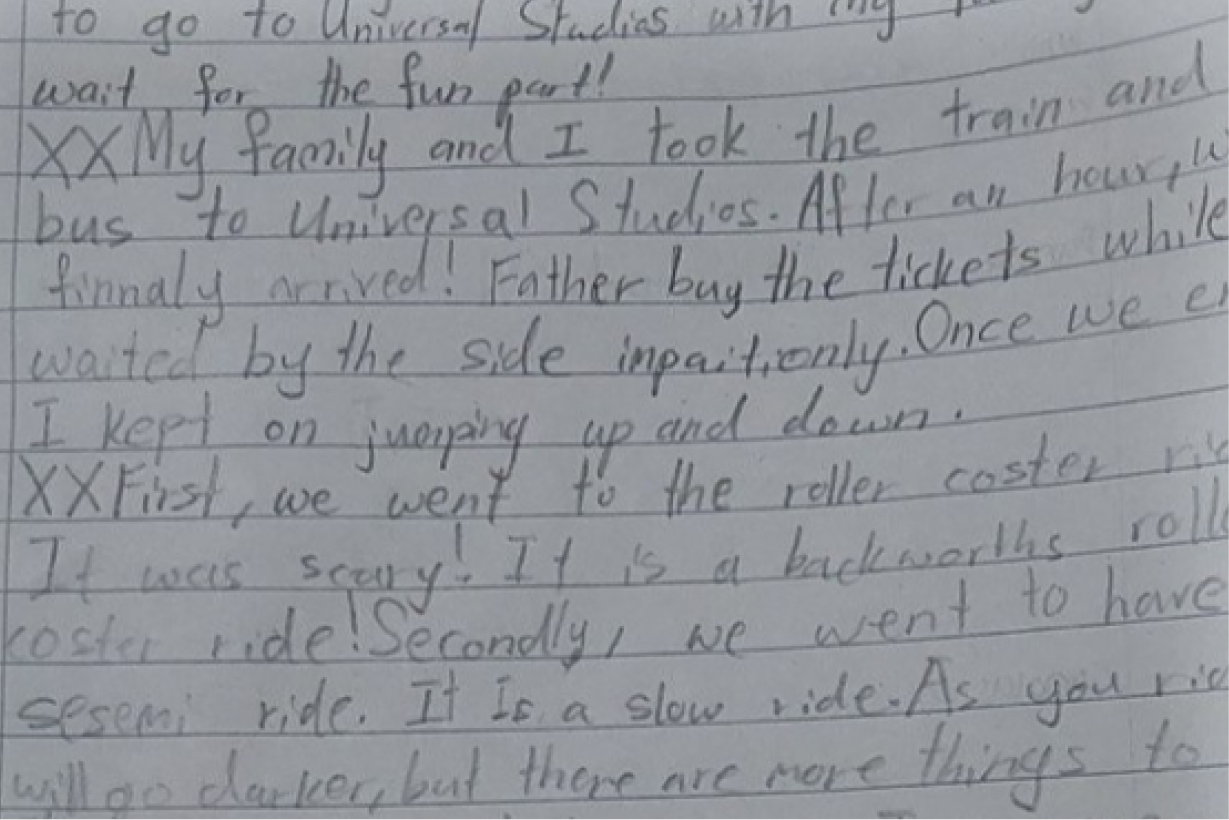 to go to Universal Studios with my
wait for the fun part!
XX My family and I took the train and
bus to Universal Studios. After an hour,
finnaly arrived! Father buy the tickets while
waited by the side inpaitionly. Once we
I kept on jumping up and down.
XX First, we went to the roller coster
It was scary! It is a backworths roll
coster ride! Secondly, we went to have
sesemi ride. It Is a slow ride. As you
will go darker, but there are more things to